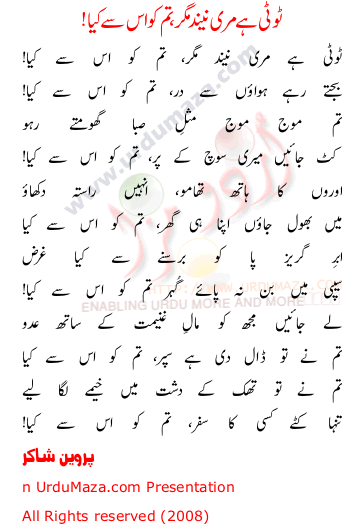 ٹوٹی ہے مری نیند مگر، تم کو اس سے کیا!
ٹوٹی ہے مری نیند مگر، تم کو اس سے کیا!
بجتے رہے ہواؤں سے در، تم کو اس سے کیا!
تم موج موج مثل صبا گھومتے رہو
کٹ جائیں میری سوچ کے پر، تم کو اس سے کیا!
اوروں کا ہاتھ تھامو، انہیں راستہ دکھاؤ
میں بھول جاؤں اپنا ہی گھر، تم کو اس سے کیا
ابرِ گریز پا کو برسنے سے کیا غرض
سیپی میں بن نہ پائے گُہر تم کو اس سے کیا!
لے جائیں مجھ کو مالِ غنیمت کے ساتھ عدو
تم نے تو ڈال دی ہے سپر، تم کو اس سے کیا
تم نے تو تھک کے دشت میں خیمے لگا لیے
تنہا کٹے کسی کا سفر، تم کو اس سے کیا!
پروین شاکر
n UrduMaza.com Presentation
All Rights reserved (2008)
www.urdumaza.com
اردو مزا
WWW.URDUMAZA.COM
ENABLING URDU AND MORE